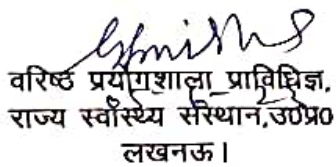 वरिष्ठ प्रयोगशाला प्राविधिज्ञ,
राज्य स्वास्थ्य संस्थान, उ0प्र0
लखनऊ।